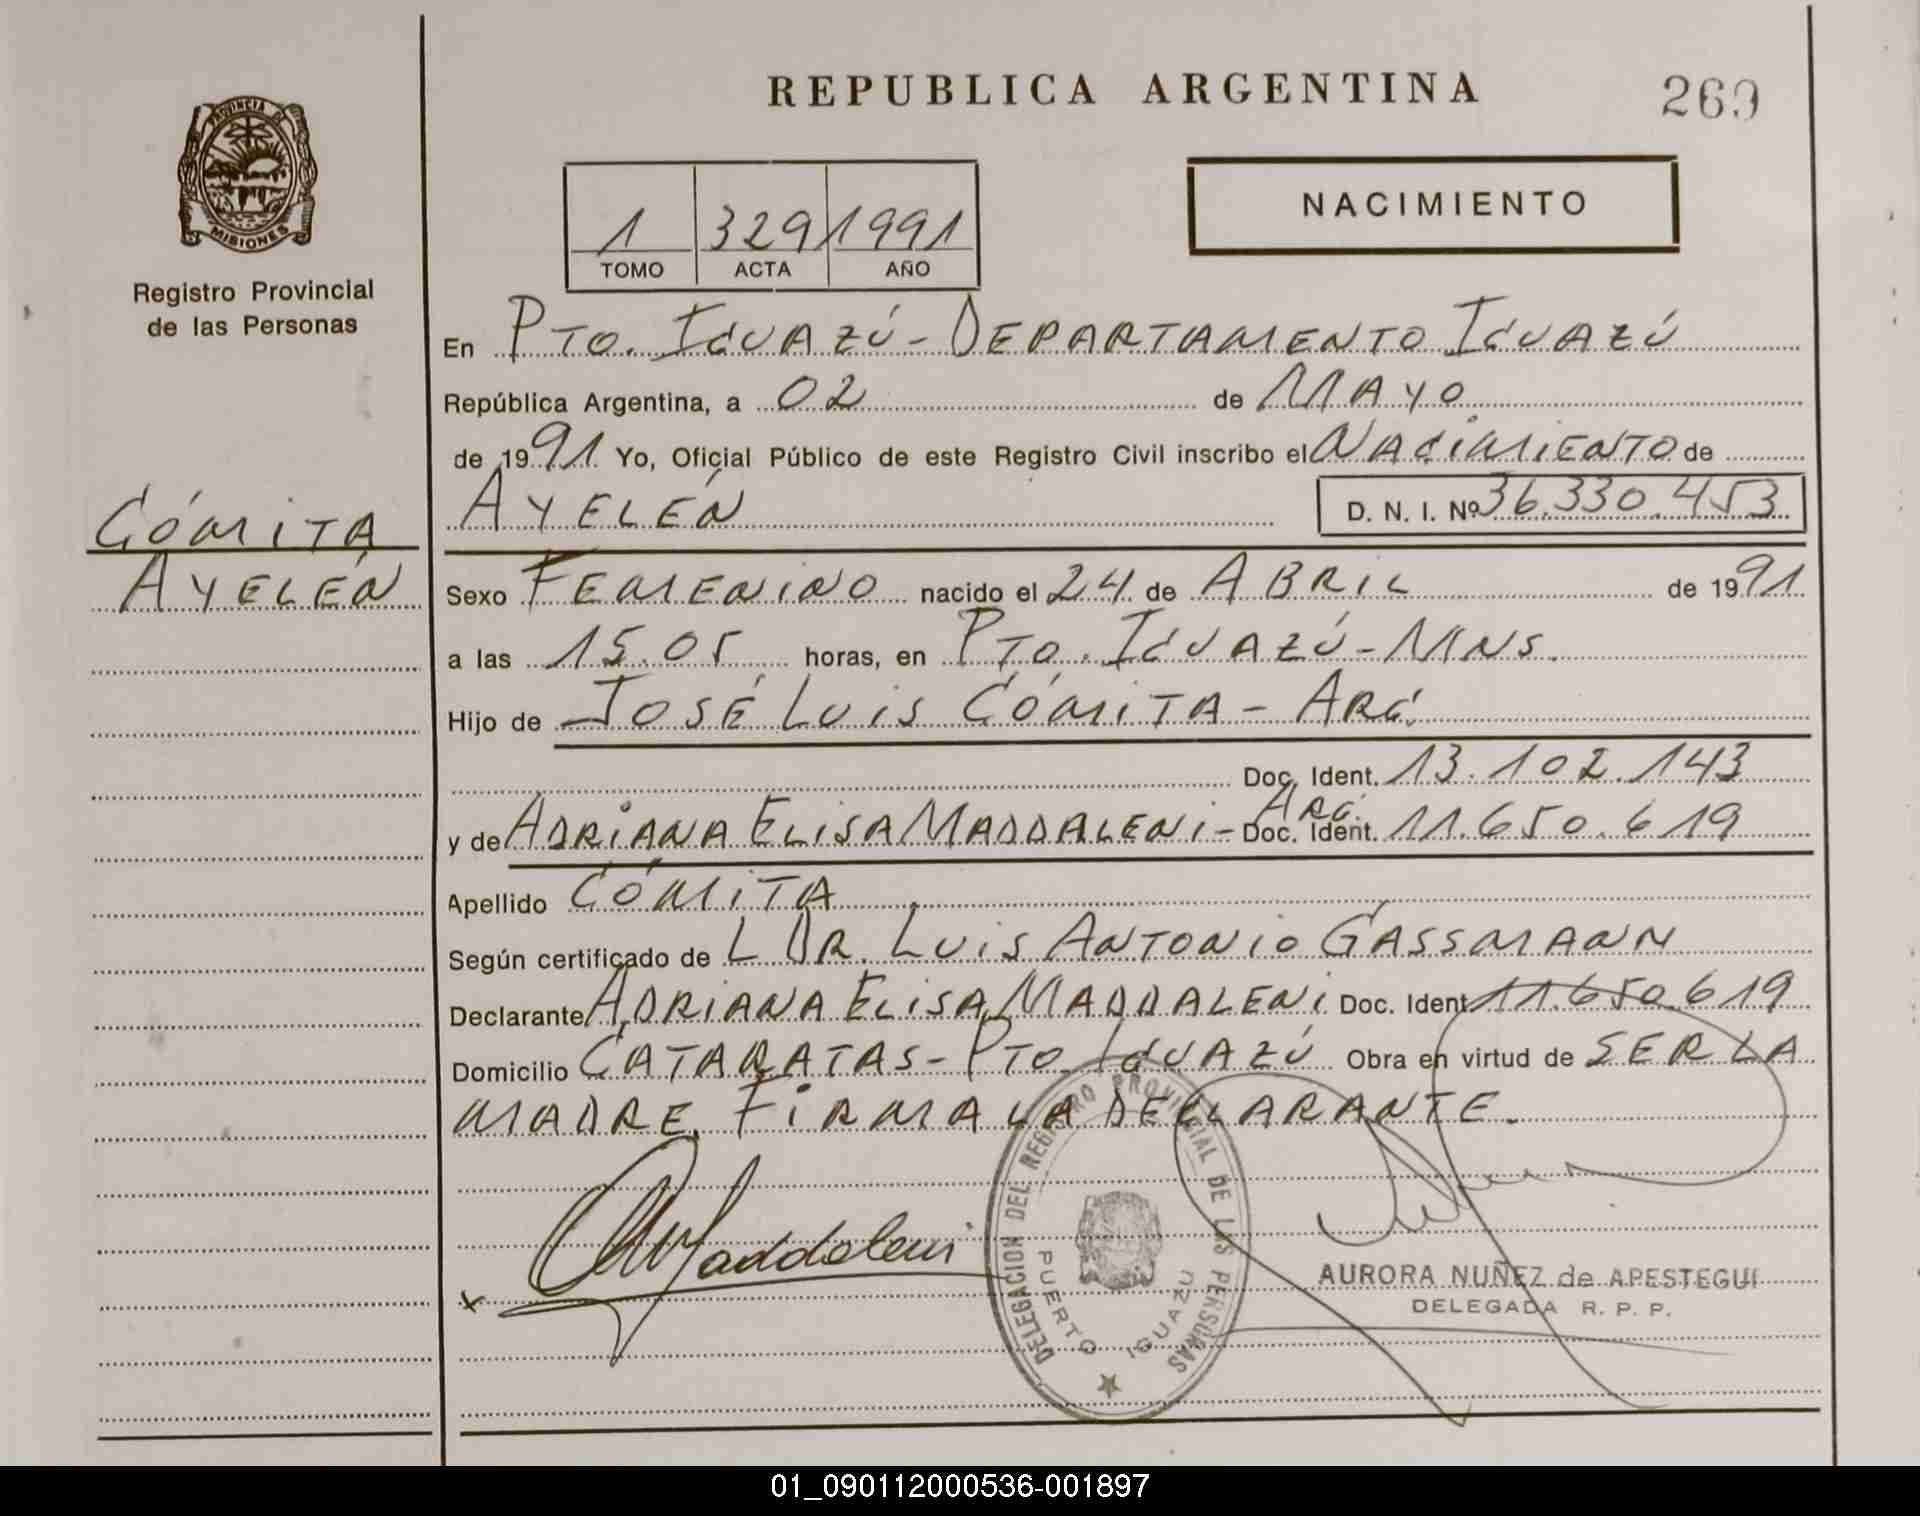 REPUBLICA ARGENTINA
269
PROVINCIA DE
MISIONES
Registro Provincial
de las Personas
1 329 1991
TOMO ACTA AÑO
NACIMIENTO
En PTO. IGUAZÚ - DEPARTAMENTO IGUAZÚ
República Argentina, a 02 de MAYO
de 1991 Yo, Oficial Público de este Registro Civil inscribo el NACIMIENTO de
AYELÉN D. N. I. Nº 36.330.453
CÓMITA
AYELÉN
Sexo FEMENINO nacido el 24 de ABRIL de 1991
a las 15.05 horas, en PTO. IGUAZÚ - MNS.
Hijo de JOSÉ LUIS CÓMITA - ARG.
Doc. Ident. 13.102.143
y de ADRIANA ELISA MADDALENI - ARG. Doc. Ident. 11.650.619
Apellido CÓMITA
Según certificado de L DR. LUIS ANTONIO GASSMANN
Declarante ADRIANA ELISA MADDALENI Doc. Ident. 11.650.619
Domicilio CATARATAS - PTO. IGUAZÚ Obra en virtud de SER LA
MADRE. FIRMA LA DECLARANTE.
Maddaleni
x
DELEGACION DEL REGISTRO PROVINCIAL DE LAS PERSONAS
PUERTO IGUAZU
AURORA NUÑEZ de APESTEGUI
DELEGADA R. P. P.
01_090112000536-001897